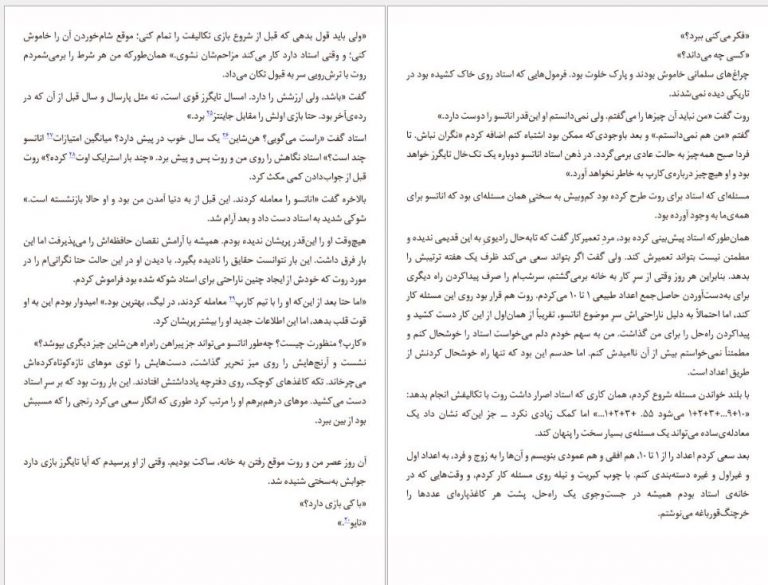 «فکر می‌کنی ببرد؟»
«کسی چه می‌داند؟»
چراغ‌های سلمانی خاموش بودند و پارک خلوت بود. فرمول‌هایی که استاد روی خاک کشیده بود در
تاریکی دیده نمی‌شدند.
روت گفت «من نباید آن چیزها را می‌گفتم. ولی نمی‌دانستم او این‌قدر اناتسو را دوست دارد.»
گفتم «من هم نمی‌دانستم.» و بعد باوجودی‌که ممکن بود اشتباه کنم اضافه کردم «نگران نباش، تا
فردا صبح همه‌چیز به حالت عادی برمی‌گردد. در ذهن استاد اناتسو دوباره یک تک‌خال تایگرز خواهد
بود و او هیچ‌چیز درباره‌ی کارپ به خاطر نخواهد آورد.»
مسئله‌ای که استاد برای روت طرح کرده بود کم‌وبیش به سختی همان مسئله‌ای بود که اناتسو برای
همه‌ی‌ما به وجود آورده بود.
همان‌طورکه استاد پیش‌بینی کرده بود، مرد تعمیرکار گفت که تابه‌حال رادیوی به این قدیمی ندیده و
مطمئن نیست بتواند تعمیرش کند. ولی گفت اگر بتواند سعی می‌کند ظرف یک هفته ترتیبش را
بدهد. بنابراین هر روز وقتی از سر کار به خانه برمی‌گشتم، سرشب‌ام را صرف پیداکردن راه دیگری
برای به‌دست‌آوردن حاصل‌جمع اعداد طبیعی ۱ تا ۱۰ می‌کردم. روت هم قرار بود روی این مسئله کار
کند، اما احتمالاً به دلیل ناراحتی‌اش سر موضوع اناتسو، تقریباً از همان‌اول از این کار دست کشید و
پیداکردن راه‌حل را برای من گذاشت. من به سهم خودم دلم می‌خواست استاد را خوشحال کنم و
مطمئناً نمی‌خواستم بیش از آن ناامیدش کنم. اما حدسم این بود که تنها راه خوشحال کردنش از
طریق اعداد است.
با بلند خواندن مسئله شروع کردم، همان کاری که استاد اصرار داشت روت با تکالیفش انجام بدهد:
«۱+۲+۳+...۹+۱۰ می‌شود ۵۵. ۱+۲+۳+...» اما کمک زیادی نکرد ــ جز این‌که نشان داد یک
معادله‌ی‌ساده می‌تواند یک مسئله‌ی بسیار سخت را پنهان کند.
بعد سعی کردم اعداد را از ۱ تا ۱۰، هم افقی و هم عمودی بنویسم و آن‌ها را به زوج و فرد، به اعداد اول
و غیراول و غیره دسته‌بندی کنم. با چوب کبریت و تیله روی مسئله کار کردم، و وقت‌هایی که در
خانه‌ی استاد بودم همیشه در جست‌وجوی یک راه‌حل، پشت هر کاغذپاره‌ای عددها را
خرچنگ‌قورباغه می‌نوشتم.
«ولی باید قول بدهی که قبل از شروع بازی تکالیفت را تمام کنی؛ موقع شام‌خوردن آن را خاموش
کنی؛ و وقتی استاد دارد کار می‌کند مزاحم‌شان نشوی.» همان‌طورکه من هر شرط را برمی‌شمردم
روت با ترش‌رویی سر به قبول تکان می‌داد.
گفت «باشد، ولی ارزشش را دارد. امسال تایگرز قوی است، نه مثل پارسال و سال قبل از آن که در
رده‌ی‌آخر بود. حتا بازی اولش را مقابل جاینتز۲۵ برد.»
استاد گفت «راست می‌گویی؟ هن‌شاین۲۶ یک سال خوب در پیش دارد؟ میانگین امتیازات۲۷ اناتسو
چند است؟» استاد نگاهش را روی من و روت پس و پیش برد. «چند بار استرایک اوت۲۸ کرده؟» روت
قبل از جواب‌دادن کمی مکث کرد.
بالاخره گفت «اناتسو را معامله کردند. این قبل از به دنیا آمدن من بود و او حالا بازنشسته است.»
شوکی شدید به استاد دست داد و بعد آرام شد.
هیچ‌وقت او را این‌قدر پریشان ندیده بودم. همیشه با آرامش نقصان حافظه‌اش را می‌پذیرفت اما این
بار فرق داشت. این بار نتوانست حقایق را نادیده بگیرد. با دیدن او در این حالت حتا نگرانی‌ام را در
مورد روت که خودش از ایجاد چنین ناراحتی برای استاد شوکه شده بود فراموش کردم.
«اما حتا بعد از این‌که او را با تیم کارپ۲۹ معامله کردند، در لیگ، بهترین بود.» امیدوار بودم این به او
قوت قلب بدهد، اما این اطلاعات جدید او را بیشتر پریشان کرد.
«کارپ؟ منظورت چیست؟ چه‌طور اناتسو می‌تواند جز پیراهن راه‌راه هن‌شاین چیز دیگری بپوشد؟»
نشست و آرنج‌هایش را روی میز تحریر گذاشت، دست‌هایش را توی موهای تازه‌کوتاه‌کرده‌اش
می‌چرخاند. تکه کاغذهای کوچک، روی دفترچه یادداشتش افتادند. این بار روت بود که بر سر استاد
دست می‌کشید. موهای درهم‌برهم او را مرتب کرد طوری که انگار سعی می‌کرد رنجی را که مسببش
بود از بین ببرد.
آن روز عصر من و روت موقع رفتن به خانه، ساکت بودیم. وقتی از او پرسیدم که آیا تایگرز بازی دارد
جوابش به‌سختی شنیده شد.
«با کی بازی دارد؟»
«تایو۳۰.»